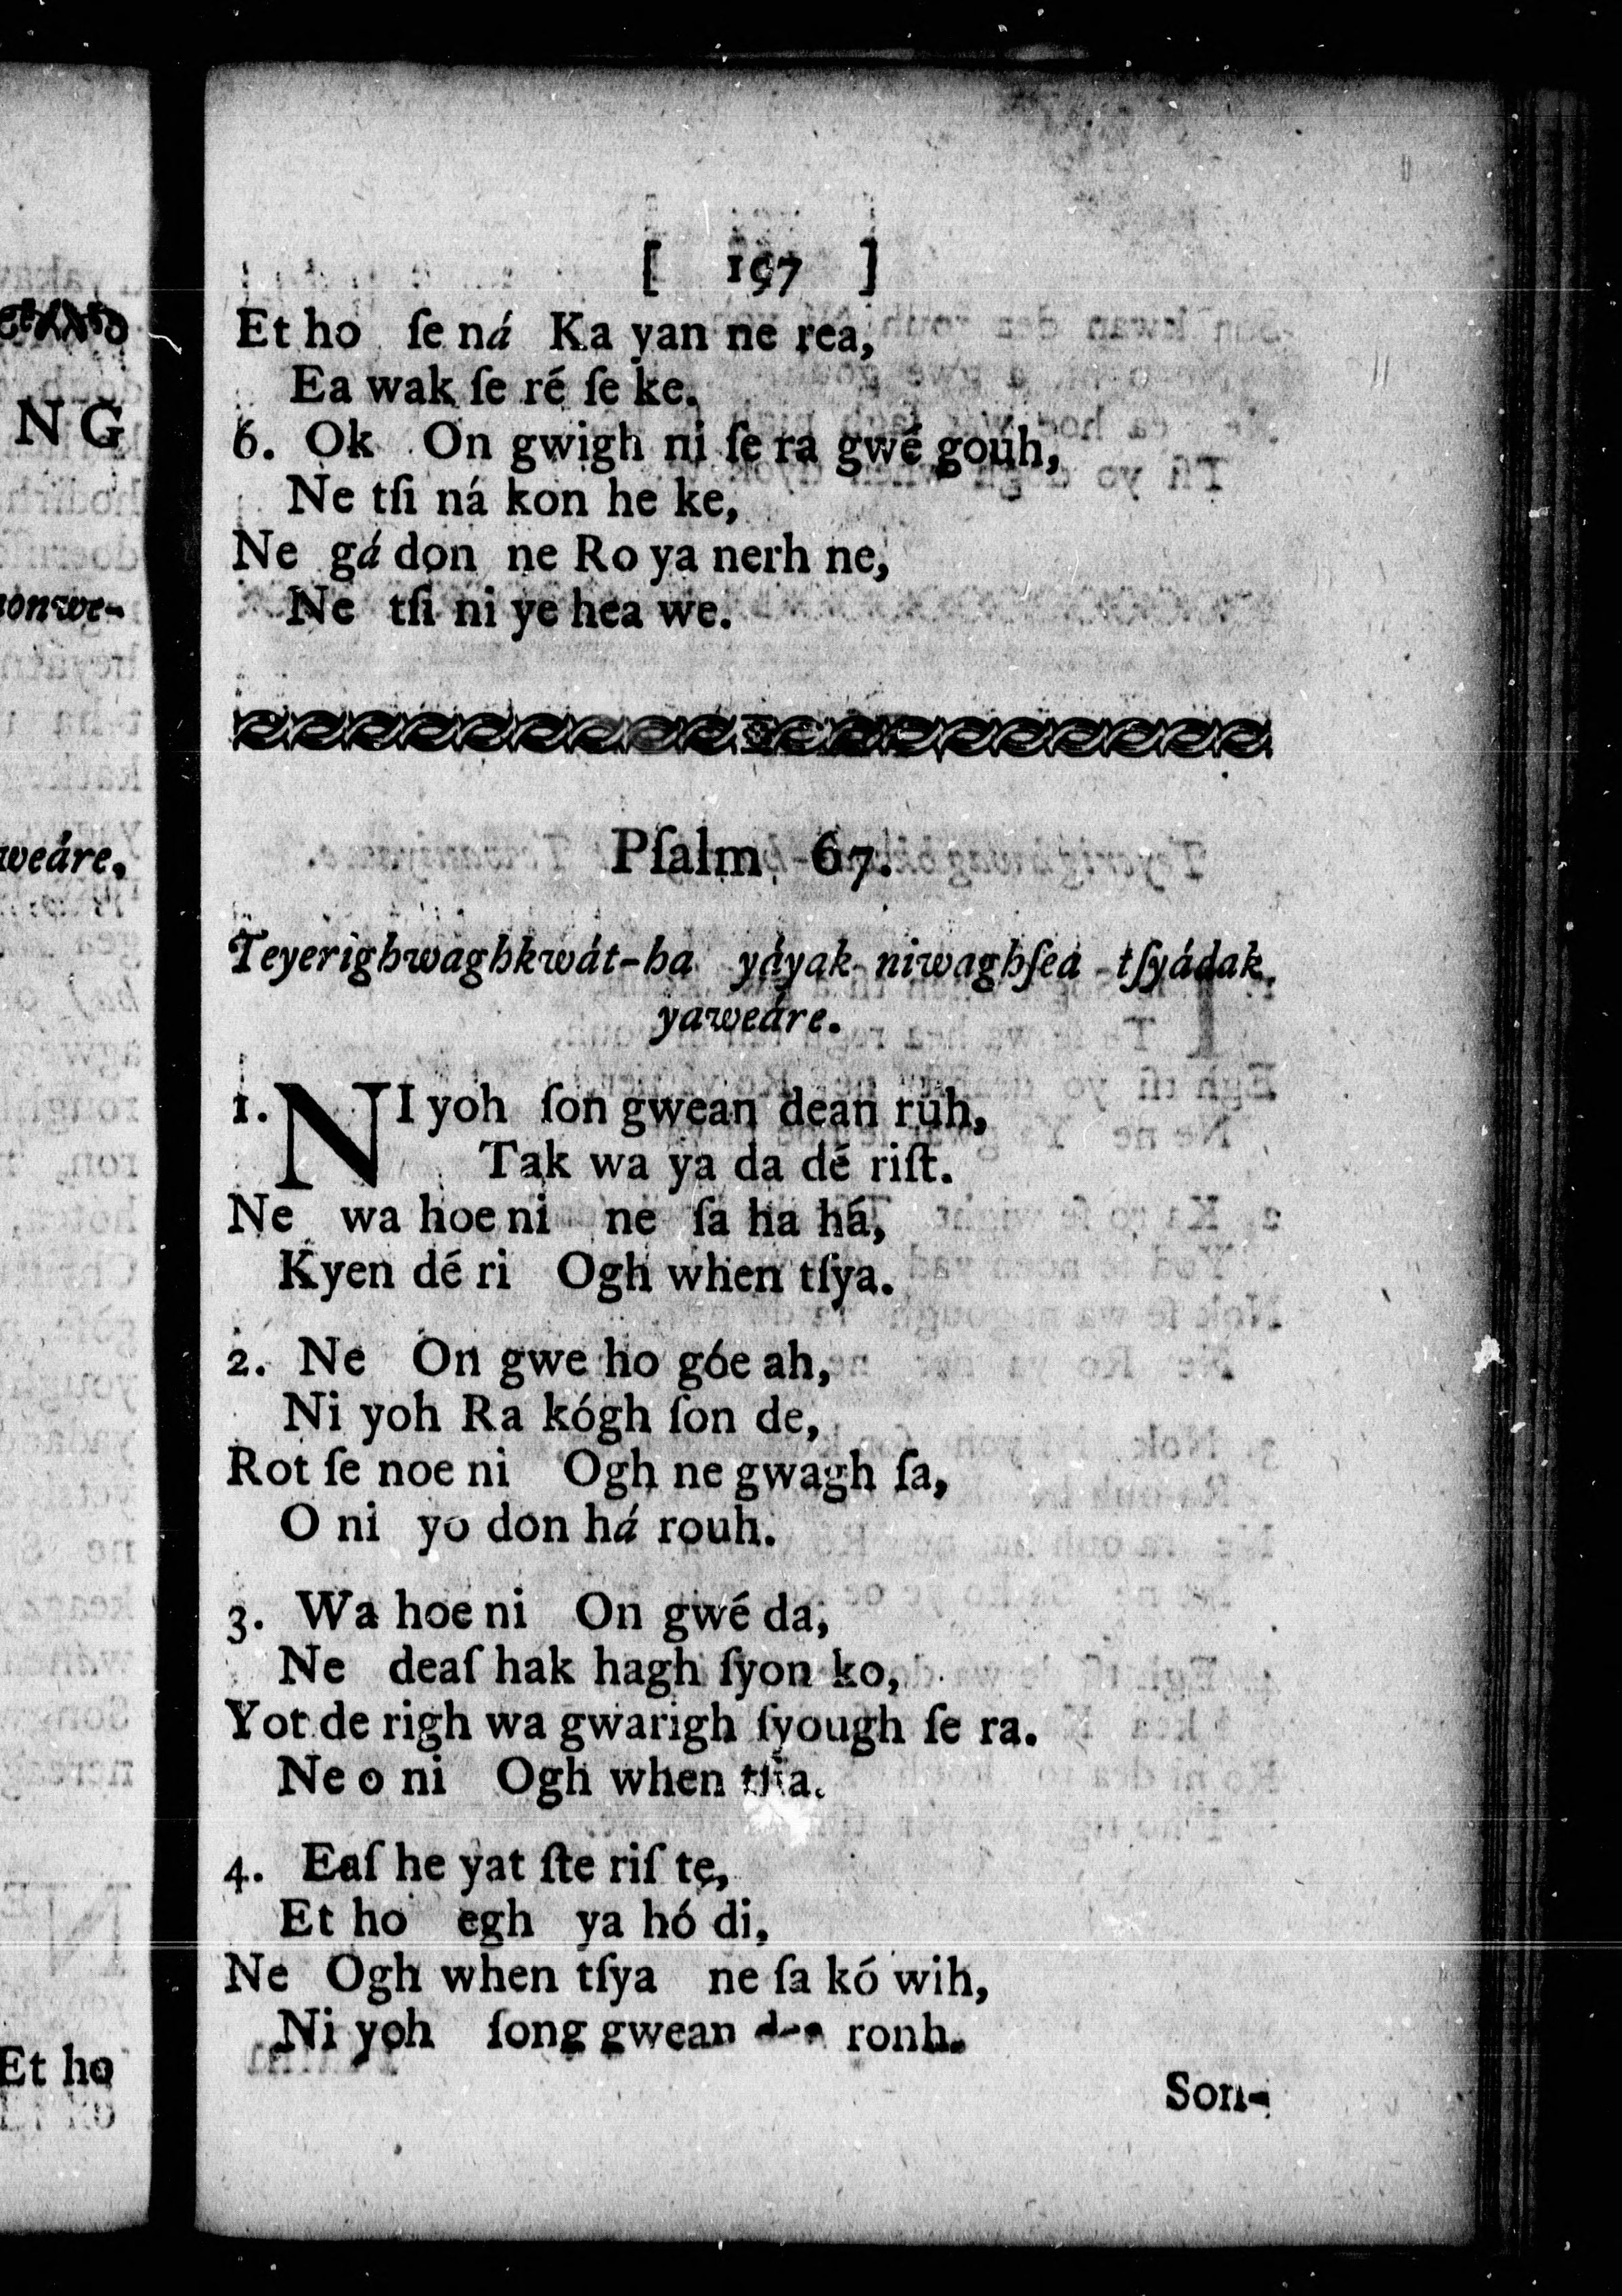 [ 197 ]
Et ho ſe ná Ka yan ne rea,
Ea wak ſe ré ſe ke.
6. Ok On gwigh ni ſe ra gwé gouh,
Ne tſi ná kon he ke,
Ne gá don ne Ro ya nerh ne,
Ne tſi ni ye hea we.
Pſalm 67.
Teyerighwaghkwát-ha yáyak niwaghſea tſyádak
yaweáre.
1. NI yoh ſon gwean dean ruh,
Tak wa ya da dé riſt.
Ne wa hoe ni ne ſa ha há,
Kyen dé ri Ogh when tſya.
2. Ne On gwe ho góe ah,
Ni yoh Ra kógh ſon de,
Rot ſe noe ni Ogh ne gwagh ſa,
O ni yo don há rouh.
3. Wa hoe ni On gwé da,
Ne deaſ hak hagh ſyon ko,
Yot de righ wa gwarigh ſyough ſe ra.
Ne o ni Ogh when tſia.
4. Eaſ he yat ſte riſ te,
Et ho egh ya hó di,
Ne Ogh when tſya ne ſa kó wih,
Ni yoh ſong gwean ronh.
Son-
NG
onwe-
weáre,
Et ho